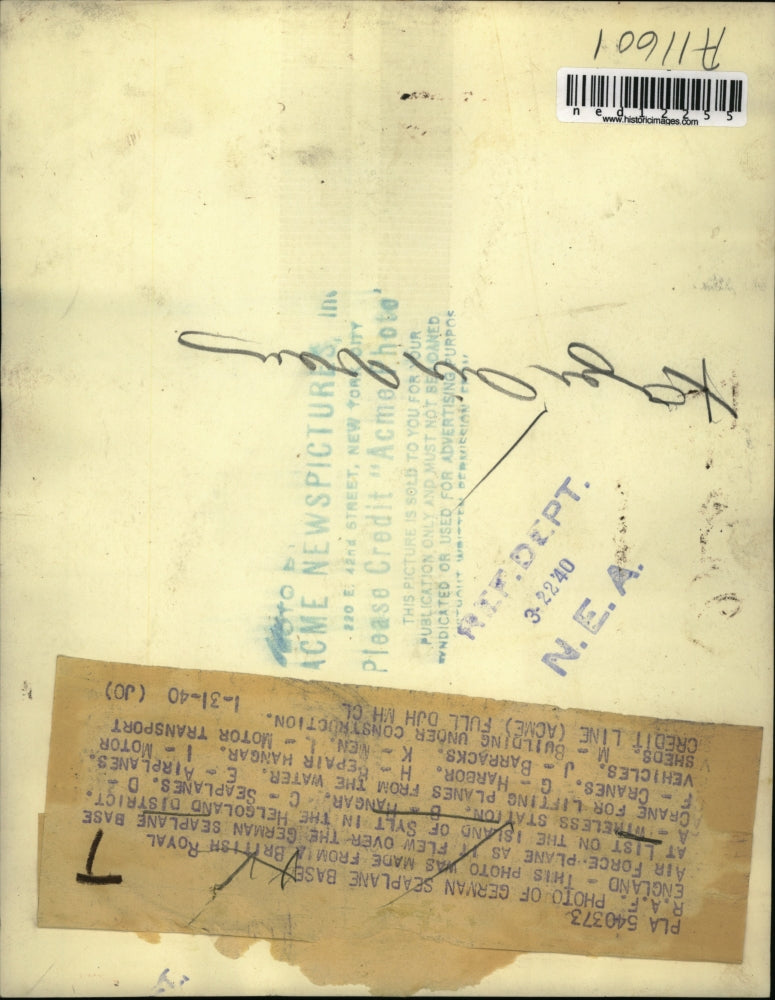 A11601
ned12255
www.historicimages.com
ACME NEWSPICTURES, Inc
220 E. 42nd STREET, NEW YORK CITY
Please Credit "Acme Photo"
THIS PICTURE IS SOLD TO YOU FOR YOUR
PUBLICATION ONLY AND MUST NOT BE LOANED
SYNDICATED OR USED FOR ADVERTISING PURPOS
WITHOUT WRITTEN PERMISSION
REF. DEPT.
3-22'40
N.E.A.
PLA 540373
R.A.F. PHOTO OF GERMAN SEAPLANE BASE
ENGLAND - THIS PHOTO WAS MADE FROM A BRITISH ROYAL
AIR FORCE PLANE AS IT FLEW OVER THE GERMAN SEAPLANE BASE
AT LIST ON THE ISLAND OF SYLT IN THE HELGOLAND DISTRICT.
A - WIRELESS STATION. B - HANGAR. C - SEAPLANES. D -
CRANE FOR LIFTING PLANES FROM THE WATER. E - AIRPLANES.
F - CRANES. G - HARBOR. H - REPAIR HANGAR. I - MOTOR
VEHICLES. J - BARRACKS. K - MEN. L - MOTOR TRANSPORT
SHEDS. M - BUILDING UNDER CONSTRUCTION.
CREDIT LINE (ACME) FULL DJH MH CL 1-31-40 (JO)